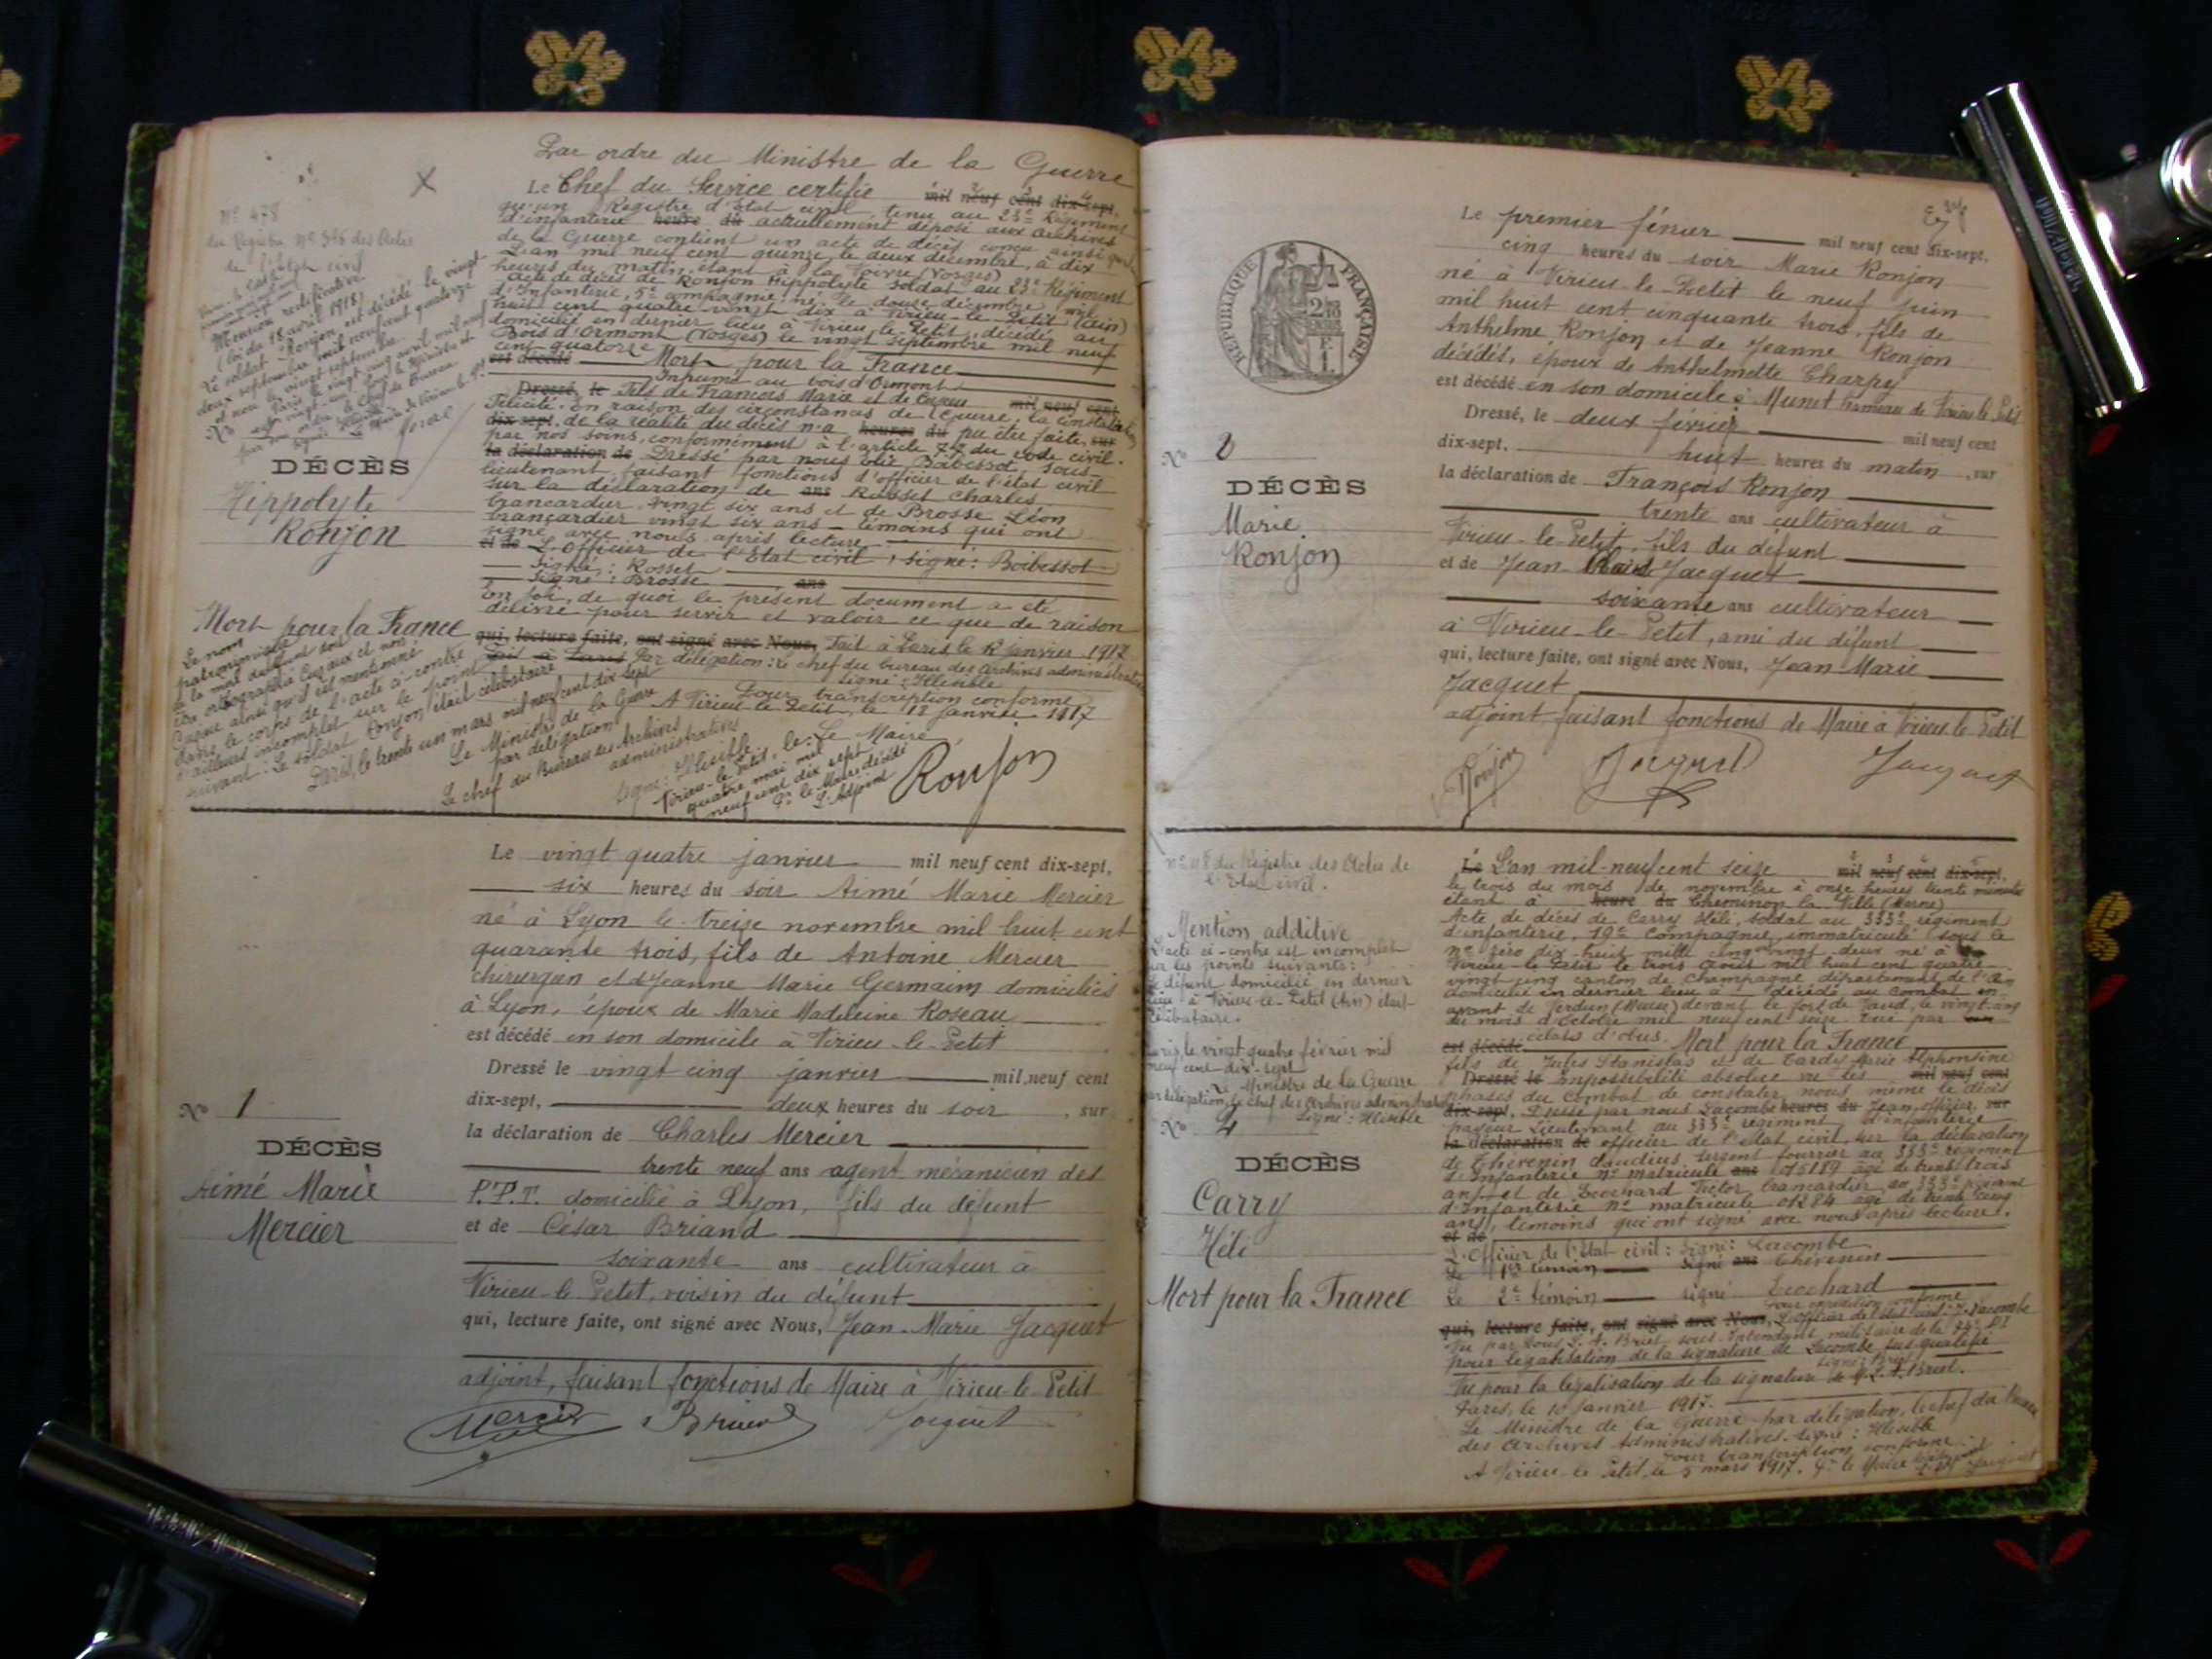 Par ordre du Ministre de la Guerre
Le Chef du Service certifie mil neuf cent dix-sept,
qu'un Registre d'Etat civil, tenu au 23e Régiment
d'infanterie heure du actuellement déposé aux archives
de la Guerre contient un acte de décès conçu ainsi qu'il
L'an mil neuf cent quinze, le deux décembre, à dix
heures du matin, étant à la Voivre (Vosges)
Acte de décès de Ronjon Hippolyte soldat au 23e Régiment
d'Infanterie, 5e compagnie; né le douze décembre mil
huit cent quatre vingt dix à Virieu-le-Petit (Ain)
domicilié en dernier lieu à Virieu-le-Petit, décédé au
Bois d'Ormont (Vosges) le vingt septembre mil neuf
cent quatorze
est décédé Mort pour la France
Inhumé au bois d'Ormont
Dressé, le Fils de François Marie et de mil neuf cent
Félicité. En raison des circonstances de Guerre, la constatation
dix-sept, de la réalité du décès n'a heures du pu être faite, sur
par nos soins, conformément à l'article 77 du code civil.
la déclaration de Dressé par nous Boibessot, sous-
lieutenant, faisant fonctions d'officier de l'état civil
sur la déclaration de ans Rosset Charles
brancardier, vingt six ans et de Brosse Léon
brancardier vingt six ans témoins qui ont
signé avec nous après lecture
et de L'officier de l'Etat civil, signé: Boibessot
Signé: Rosset
Signé: Brosse ans
En foi, de quoi le présent document a été
délivré pour servir et valoir ce que de raison
qui, lecture faite, ont signé avec Nous, Fait à Paris le janvier 1917
Fait à Paris Par délégation: le chef du bureau des Archives administratives
Signé: Illisible
Pour transcription conforme
A Virieu-le-Petit, le 18 janvier 1917
Le Maire,
Ronjon
No 478
du Registre No des Actes
de l'Etat civil
Mention rectificative
(loi du 18 avril 1918)
Le soldat Ronjon, est décédé le vingt
deux septembre mil neuf cent quatorze
et non le vingt septembre
DÉCÈS
Hippolyte
Ronjon
Mort pour la France
Le nom
patronymique
de la mère du défunt soit
être orthographié Cuzaux et non
ainsi qu'il est mentionné
dans le corps de l'acte ci-contre
d'ailleurs incomplet sur le point
suivant: Le soldat Ronjon était célibataire
Paris, le trente un mars mil neuf cent dix sept
Le Ministre de la Guerre
par délégation
Le chef du Bureau des Archives
administratives
Signé: Illisible
Virieu-le-Petit, le
quatre mai mil
neuf cent dix sept
Pr le Maire décédé
L'Adjoint
Le vingt quatre janvier mil neuf cent dix-sept,
six heures du soir Aimé Marie Mercier
né à Lyon le treize novembre mil huit cent
quarante trois, fils de Antoine Mercier
chirurgien et de Jeanne Marie Germain domiciliés
à Lyon, époux de Marie Madeleine Roseau
est décédé en son domicile à Virieu-le-Petit
Dressé le vingt cinq janvier mil neuf cent
dix-sept, deux heures du soir, sur
la déclaration de Charles Mercier
trente neuf ans agent mécanicien des
P.T.T. domicilié à Lyon, fils du défunt
et de César Briand
soixante ans cultivateur à
Virieu-le-Petit, voisin du défunt
qui, lecture faite, ont signé avec Nous, Jean-Marie Jacquet
adjoint, faisant fonctions de Maire à Virieu-le-Petit
Mercier Briand Jacquet
No 1
DÉCÈS
Aimé Marie
Mercier
RÉPUBLIQUE FRANÇAISE
Le premier février mil neuf cent dix-sept,
cinq heures du soir Marie Ronjon
né à Virieu-le-Petit le neuf juin
mil huit cent cinquante trois, fils de
Anthelme Ronjon et de Jeanne Ronjon
décédés, époux de Anthelmette Charpy
est décédé en son domicile à Munet hameau de Virieu-le-Petit
Dressé, le deux février mil neuf cent
dix-sept, huit heures du matin, sur
la déclaration de François Ronjon
trente ans cultivateur à
Virieu-le-Petit, fils du défunt
et de Jean Jacquet
soixante ans cultivateur
à Virieu-le-Petit, ami du défunt
qui, lecture faite, ont signé avec Nous, Jean-Marie
Jacquet
adjoint, faisant fonctions de Maire à Virieu-le-Petit
Ronjon Jacquet Jacquet
DÉCÈS
Marie
Ronjon
du Registre des Actes de
l'Etat civil.
Mention additive
L'acte ci-contre est incomplet
sur les points suivants:
Le défunt domicilié en dernier
lieu à Virieu-le-Petit (Ain) était
célibataire.
Paris, le vingt quatre février mil
neuf cent dix-sept
Le Ministre de la Guerre
par délégation, le chef des Archives administratives
Signé: Illisible
No
DÉCÈS
Carry
Héli
Mort pour la France
Le L'an mil-neuf cent seize mil neuf cent dix-sept,
le trois du mois de novembre à onze heures trente minutes
étant à heure du Cheminon la Ville (Marne)
Acte de décès de Carry Héli, soldat au 333e régiment
d'infanterie, 19e Compagnie, immatriculé sous le
no zéro dix-huit mille cinq vingt deux né à
Virieu-le-Petit le trois août mil huit cent quatre
vingt cinq canton de Champagne département de l'Ain
domicilié en dernier lieu à décédé au combat en
avant de Verdun (Meuse) devant le fort de Vaud, le vingt-cinq
du mois d'Octobre mil neuf cent seize tué par
éclats d'obus.
est décédé Mort pour la France
fils de Jules Stanislas et de Tardy Marie Alphonsine
Dressé le Impossibilité absolue vu les mil neuf cent
phases du Combat de constater nous même le décès
dix-sept, Dressé par nous Lacombe heures du Jean, officier, sur
payeur Lieutenant au 333e régiment d'infanterie
la déclaration de officier de l'état civil, sur la déclaration
de Thévenin Claudius, sergent fourrier au 333e régiment
d'Infanterie no matricule ans 015189 âgé de trente trois
ans, et de Lochard Victor brancardier au 333e régiment
d'Infanterie no matricule 01284 âgé de trente cinq
ans, témoins qui ont signé avec nous après lecture.
et de
L'Officier de l'Etat civil: Signé: Lacombe
Le 1er témoin signé ans Thévenin
Le 2e témoin signé Lochard
Pour expédition conforme
qui, lecture faite, ont signé avec Nous, L'officier de l'état civil: Lacombe
Vu par Nous Briet sous-Intendant militaire de la
pour légalisation de la signature de Lacombe sus qualifié
Signé: Briet
Vu pour la légalisation de la signature de M. Briet.
Paris, le 10 janvier 1917.
Le Ministre de la Guerre par délégation, le chef du Bureau
des Archives Administratives. Signé: Illisible
Pour transcription conforme
A Virieu-le-Petit, le 5 mars 1917. Pr le Maire